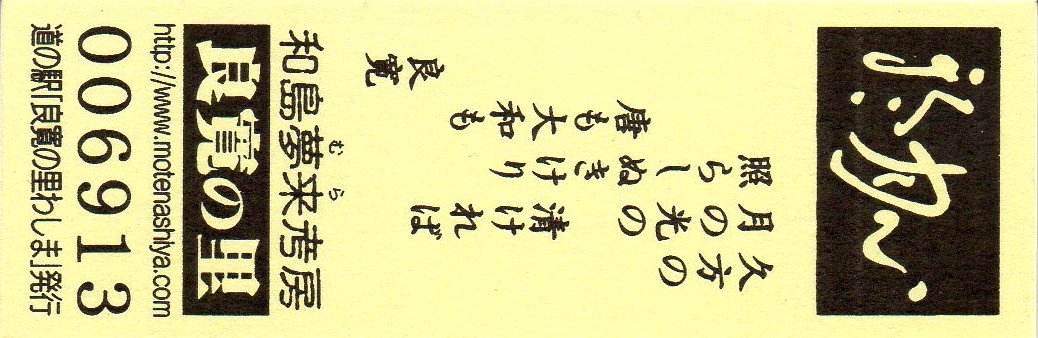 久方の
月の光の
清ければ
照らしぬきけり
唐も大和も
良寛
和島夢来考房
むら
良寛の里
http://www.motenashiya.com
006913
道の駅「良寛の里わしま」発行